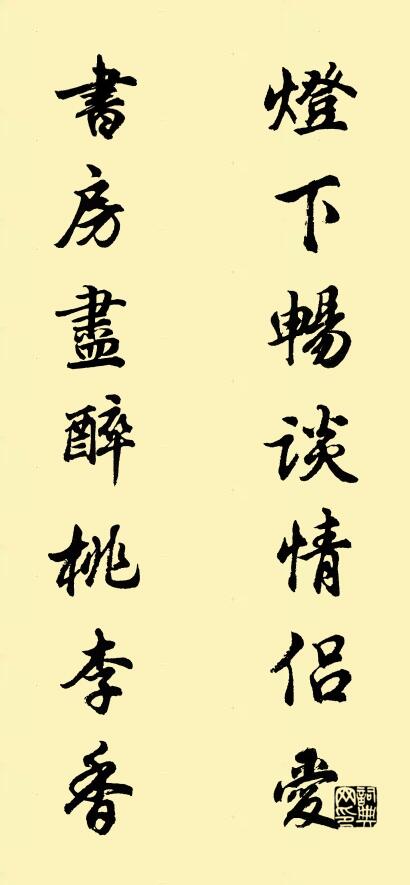 燈下暢談情侣愛
書房盡醉桃李香
詞典网印